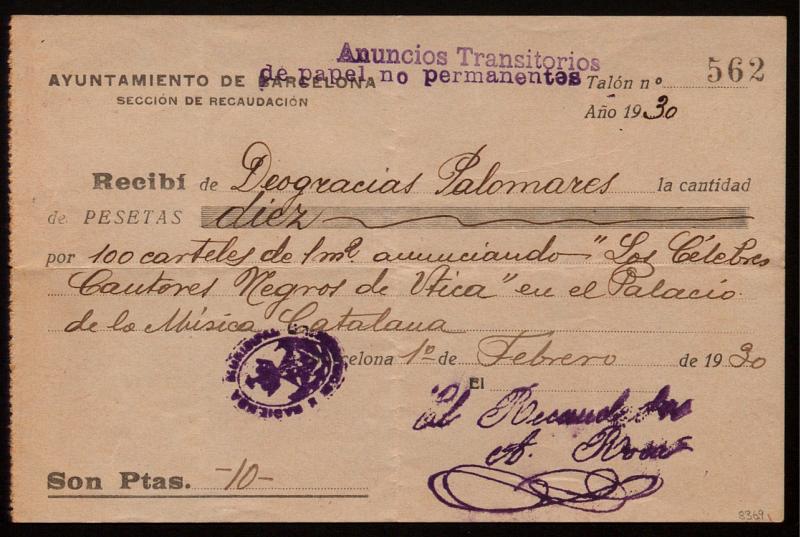 Anuncios Transitorios
de papel no permanentes
AYUNTAMIENTO DE BARCELONA
SECCIÓN DE RECAUDACIÓN
Talón nº 562
Año 1930
Recibí de Deogracias Palomares la cantidad
de PESETAS diez
por 100 carteles de 1 m². anunciando "Los Célebres
Cantores Negros de Utica" en el Palacio
de la Música Catalana
Barcelona 1º de Febrero de 1930
El
El Recaudador
A. Roca
HACIENDA MUNICIPAL
Son Ptas. -10-
8369